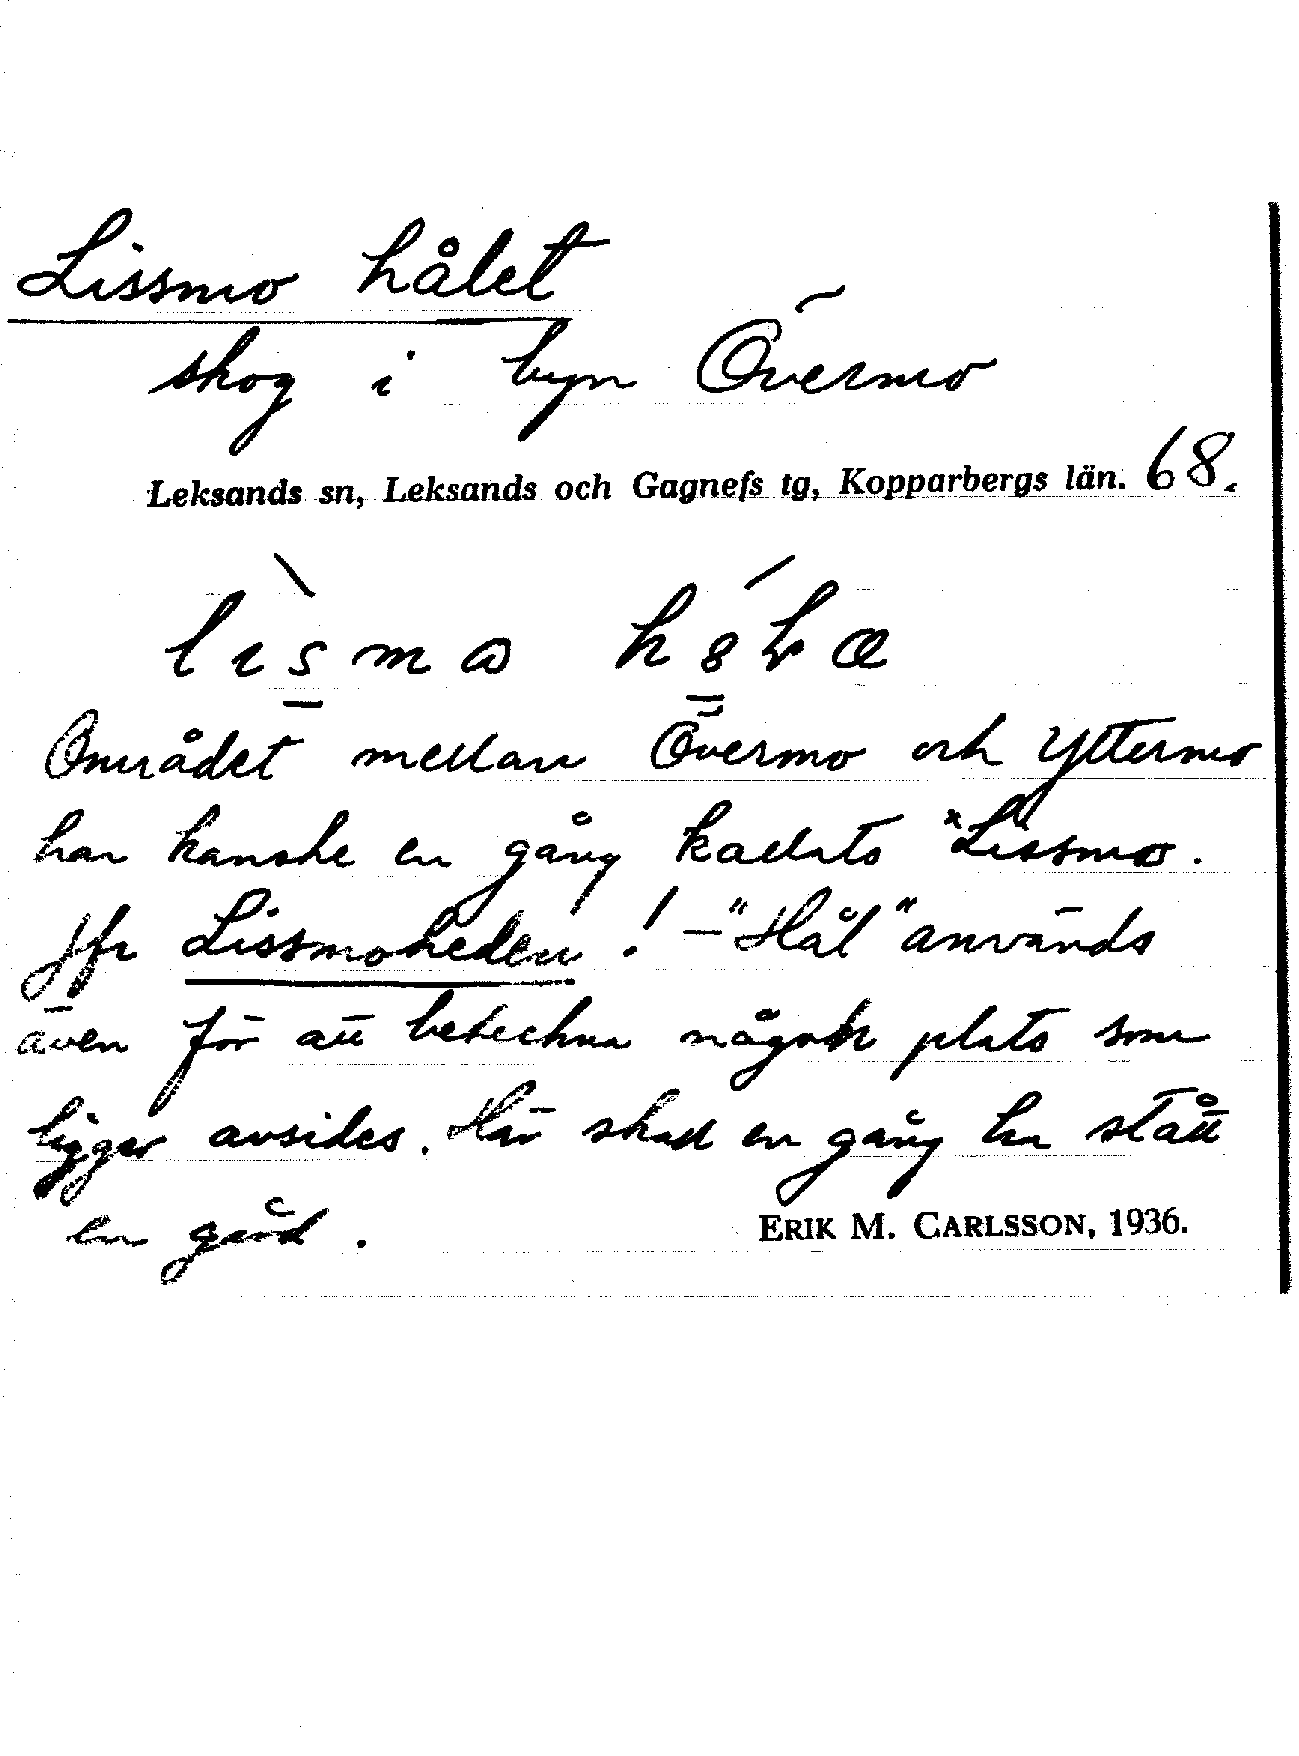 Lissmo hålet
skog i byn Övermo
Leksands sn, Leksands och Gagnefs tg, Kopparbergs län. 68.
Området mellan Övermo och Yttermo
har kanske en gång kallats *Lissmo.
Jfr Lissmoheden! – "Hål" används
även för att beteckna någon plats som
ligger avsides. Här skall en gång ha stått
en gård.
ERIK M. CARLSSON, 1936.